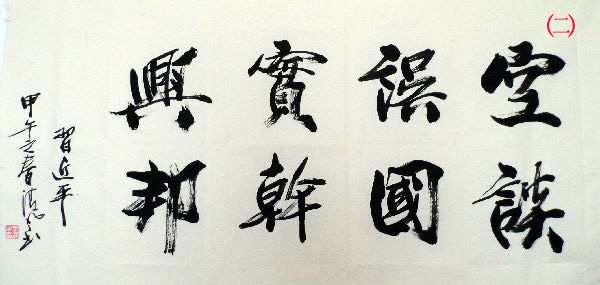 (二)
空談
誤國
實幹
興邦
習近平
甲午之春